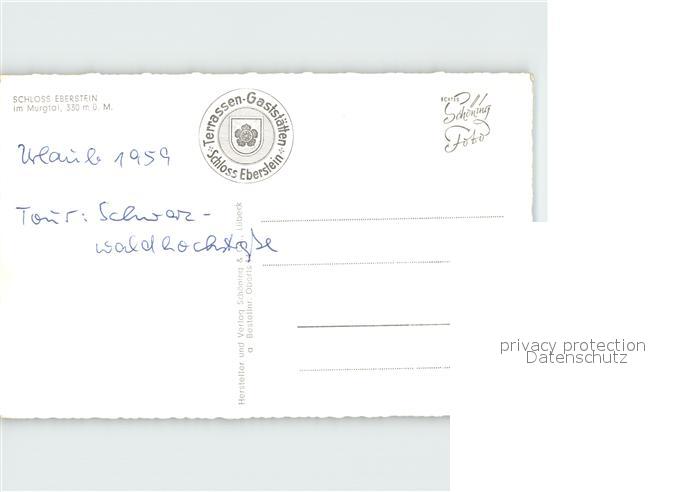 SCHLOSS EBERSTEIN
im Murgtal, 330 m ü. M.
Terrassen-Gaststätten
Schloss Eberstein
ECHTES
Schöning
Foto
Urlaub 1959
Tour: Schwarz-
waldhochstraße
Hersteller und Verlag Schöning & Co., Lübeck
a Bestellnr.
privacy protection
Datenschutz